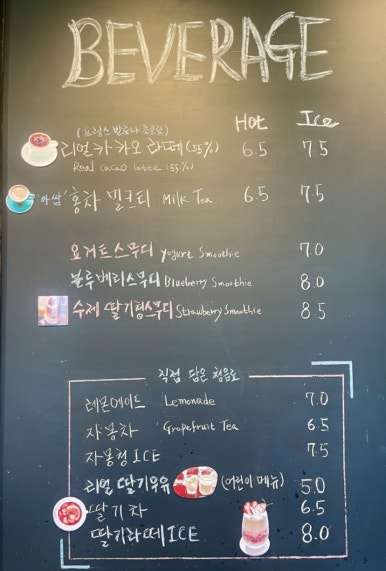 BEVERAGE
Hot Ice
(프랑스 발로나 초콜릿)
리얼 카카오 라떼 (55%) 6.5 7.5
Real cacao latte (55%)
'아쌈' 홍차 밀크티 Milk Tea 6.5 7.5
요거트스무디 Yogurt Smoothie 7.0
블루베리스무디 Blueberry Smoothie 8.0
수제 딸기청스무디 Strawberry Smoothie 8.5
직접 담은 청음료
레몬에이드 Lemonade 7.0
자몽차 Grapefruit Tea 6.5
자몽청 ICE 7.5
리얼 딸기우유 (어린이 메뉴) 5.0
딸기차 6.5
딸기라떼 ICE 8.0